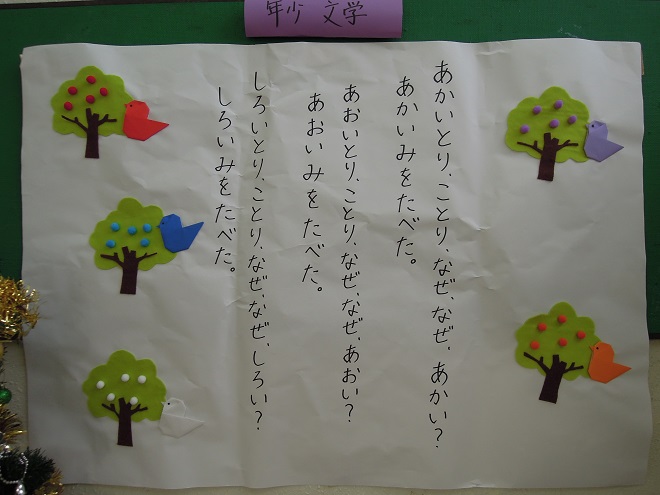 年少 文学
あかいとり、ことり、なぜ、なぜ、あかい?
あかいみをたべた。
あおいとり、ことり、なぜ、なぜ、あおい?
あおいみをたべた。
しろいとり、ことり、なぜ、なぜ、しろい?
しろいみをたべた。